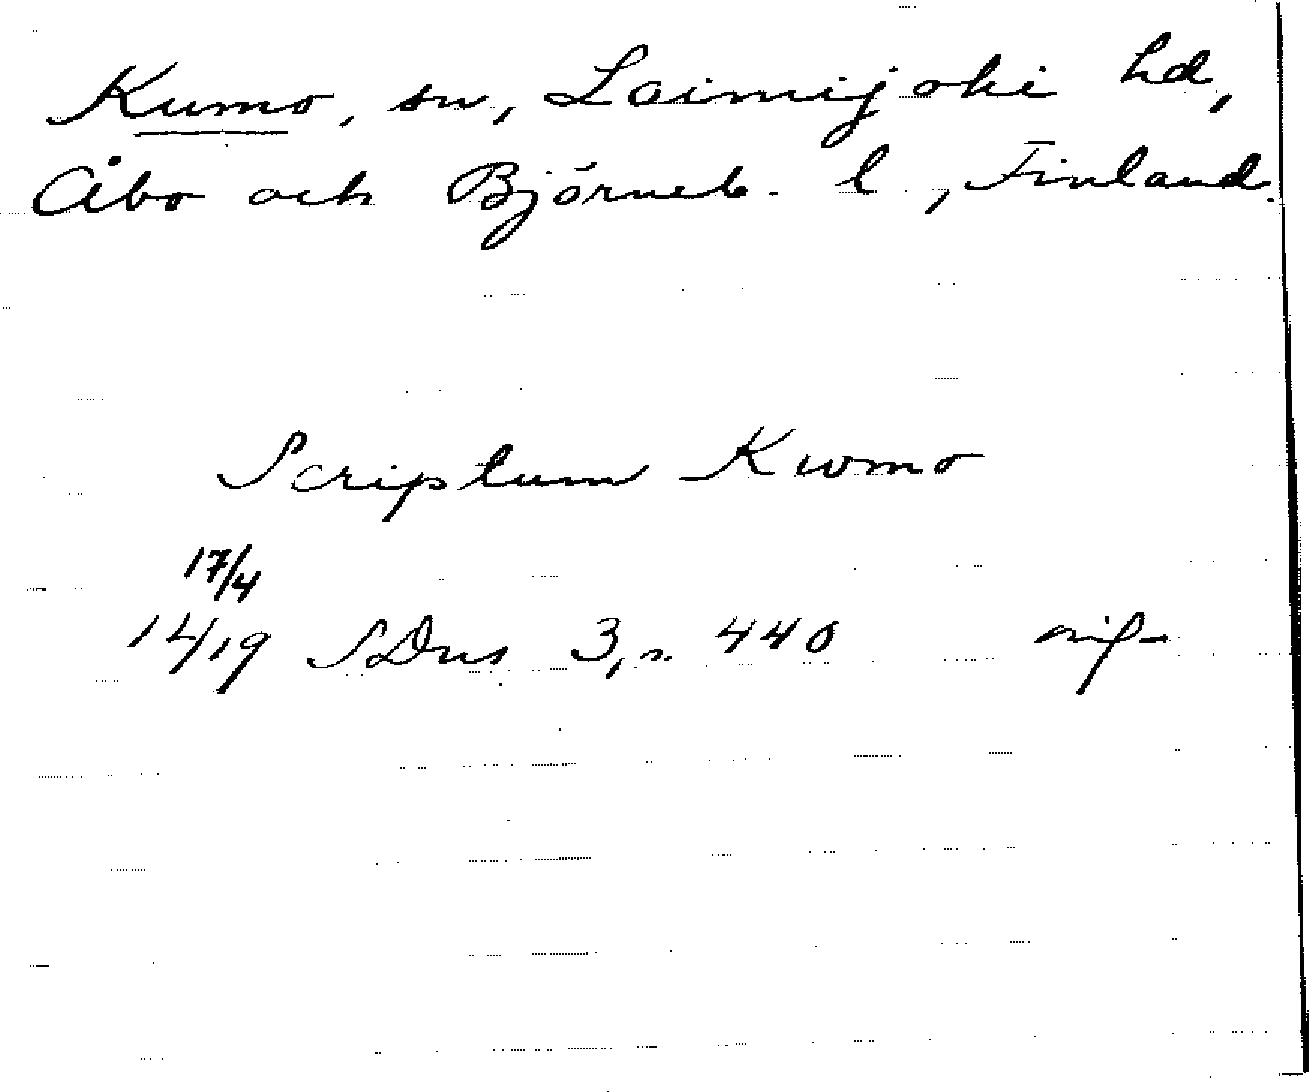 Kumo, sn, Loimijoki hd,
Åbo och Björneb. l., Finland.
Scriptum Kwmo
17/4
1419 SDns 3, s. 440 orig